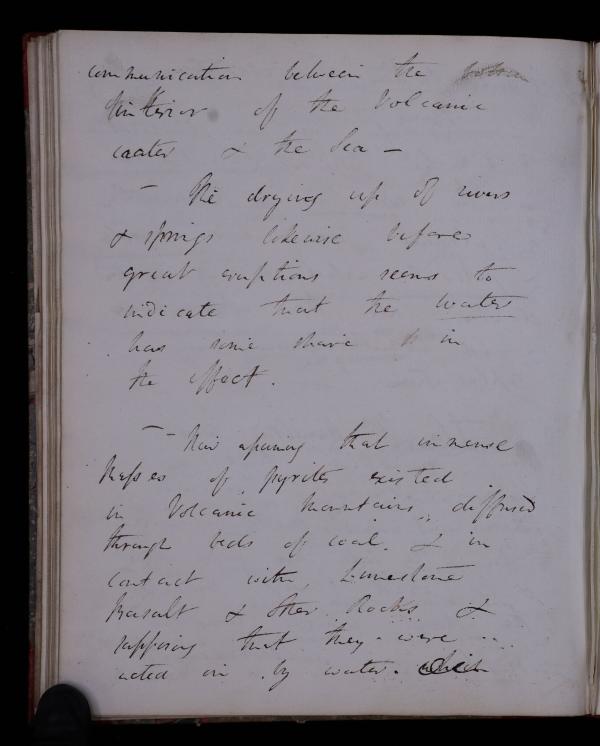 communication between the
interior of the Volcanic
crater & the Sea —
— The drying up of rivers
& springs likewise before
great eruptions seems to
indicate that the water
has some share in
the effect.
— Now assuming that immense
Masses of pyrites existed
in Volcanic Mountains, diffused
through beds of coal, & in
contact with, Limestone
Basalt & other Rocks &
supposing that they were
acted on by water. which